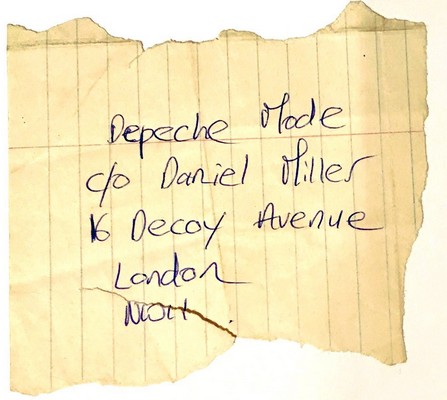 Depeche Mode
c/o Daniel Miller
16 Decoy Avenue
London
NW11